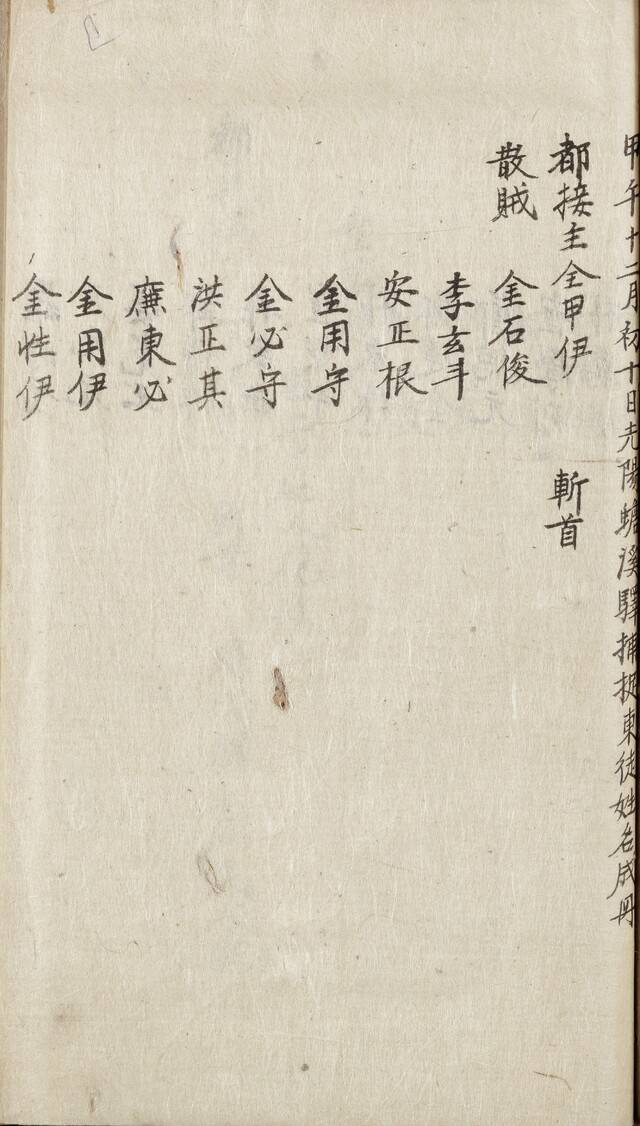 甲午十二月初十日光陽蟾溪驛捕捉東徒姓名成冊
都接主全甲伊 斬首
散賊 金石俊
李玄斗
安正根
金用守
金必守
洪正其
廉東必
金用伊
金性伊